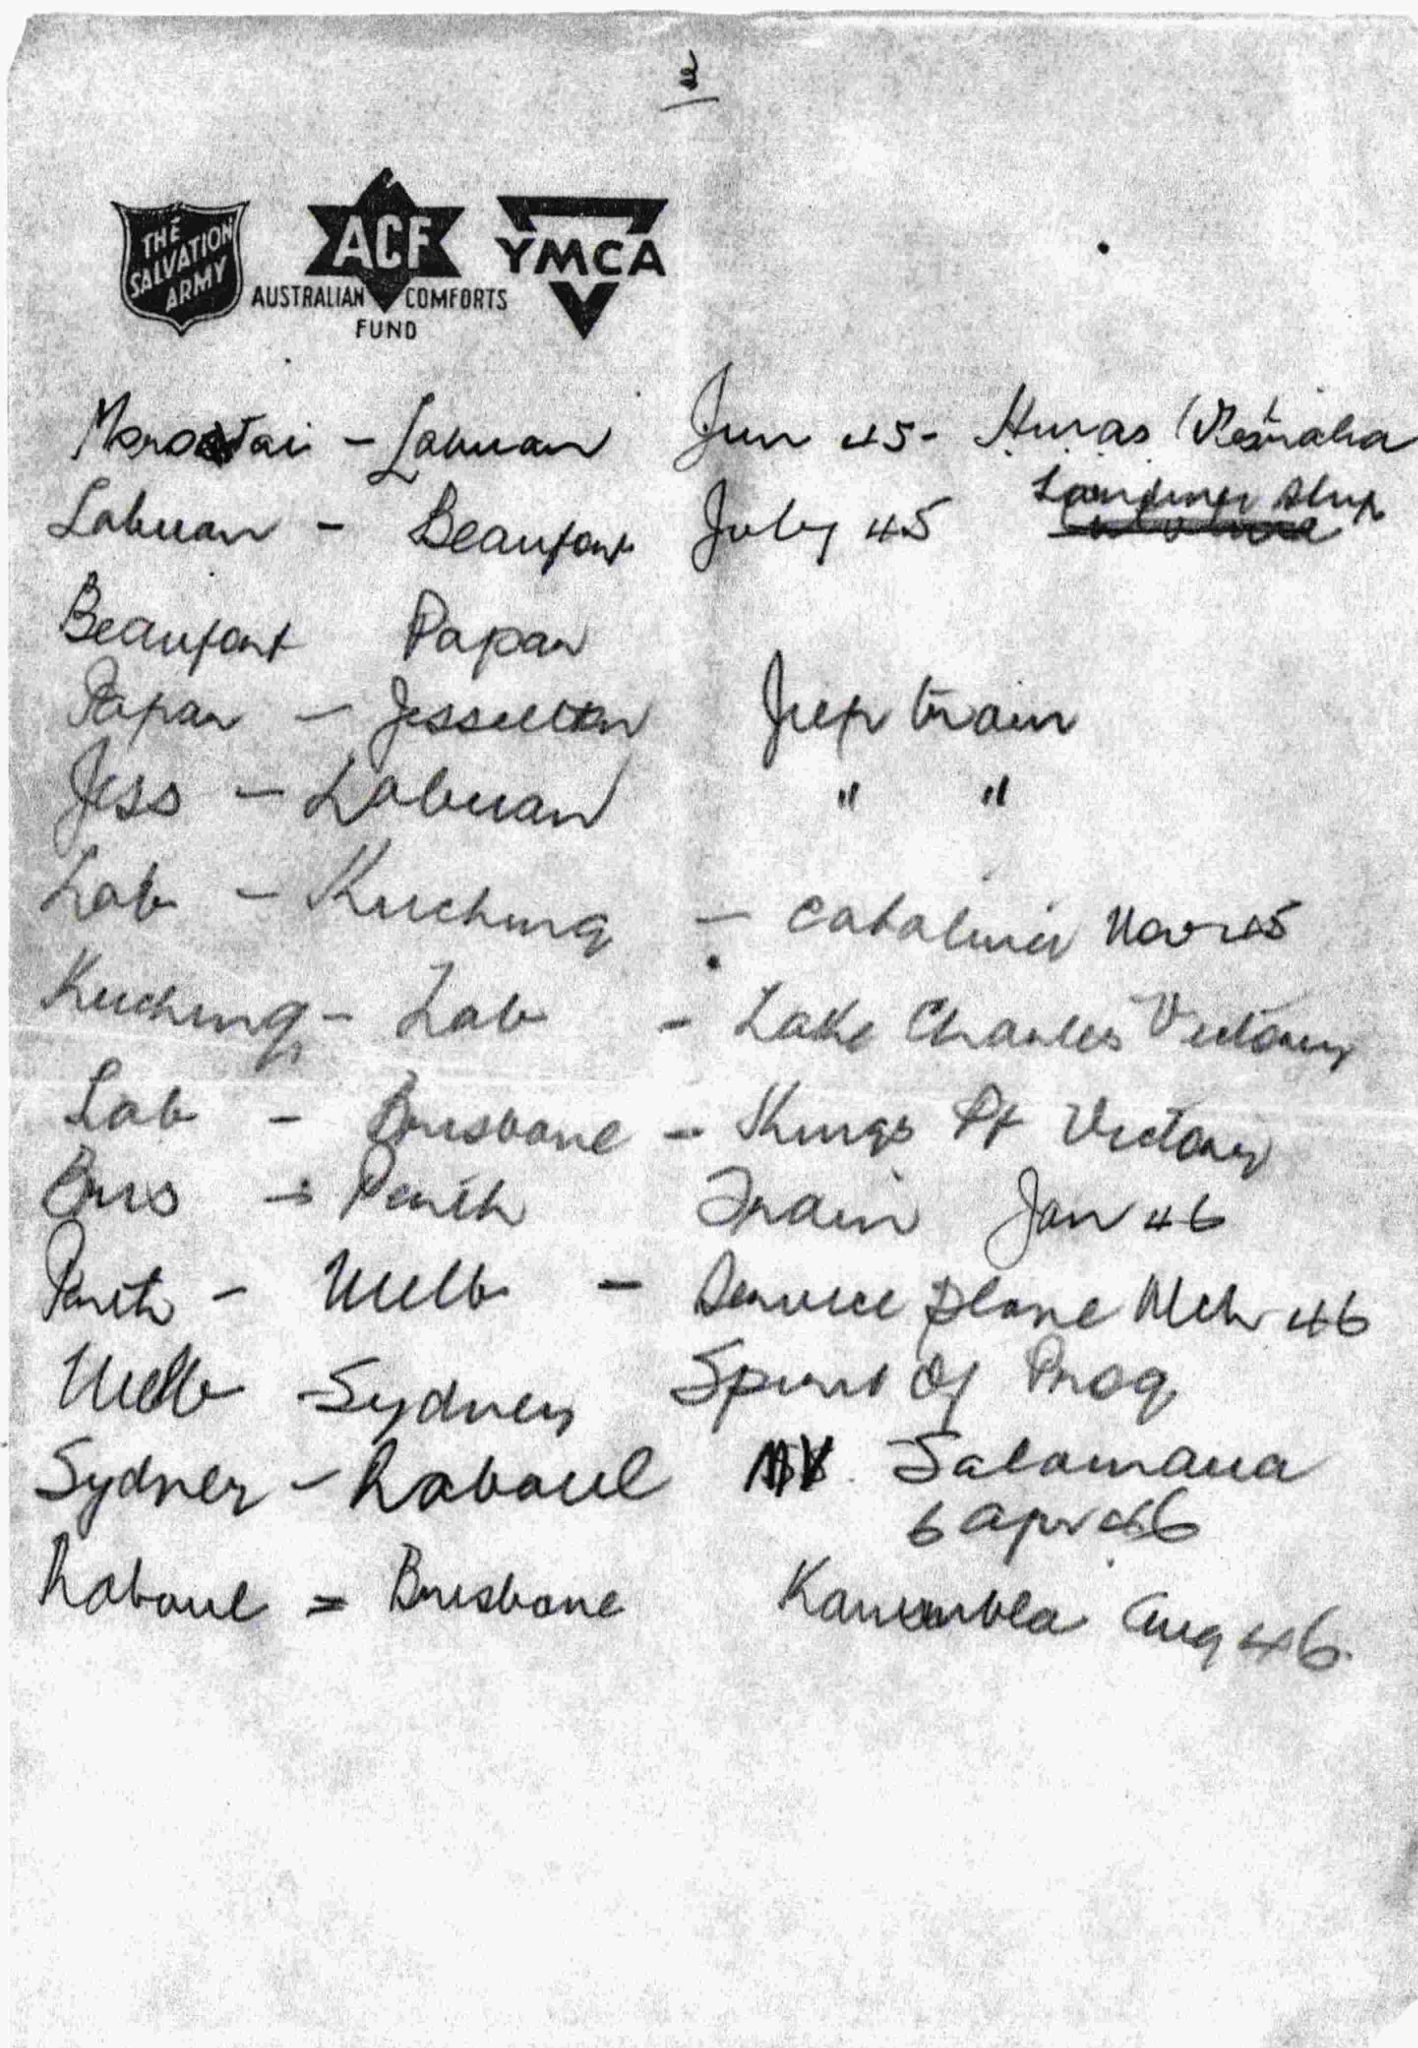 3
THE SALVATION ARMY
ACF
AUSTRALIAN COMFORTS FUND
YMCA
Morotai - Labuan Jun 45 - HMAS Westralia
Labuan - Beaufort July 45 Landing Ship
Beaufort Papar
Papar - Jesselton Jeep train
Jess - Labuan " "
Lab - Kuching - Catalina Nov 45
Kuching - Lab - Lake Charles Victory
Lab - Brisbane - Kings Pt Victory
Bris - Perth Train Jan 46
Perth - Melb - Service plane Mch 46
Melb - Sydney Spirit of Prog
Sydney - Rabaul MV Salamaua
6 Apr 46
Rabaul = Brisbane Kanimbla Aug 46.